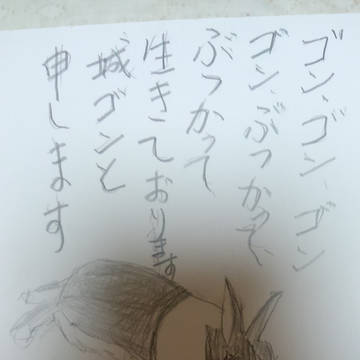 ゴン、ゴン、ゴン
ゴン、ぶつかって、
ぶつかって
生きております
城ゴンと
申します